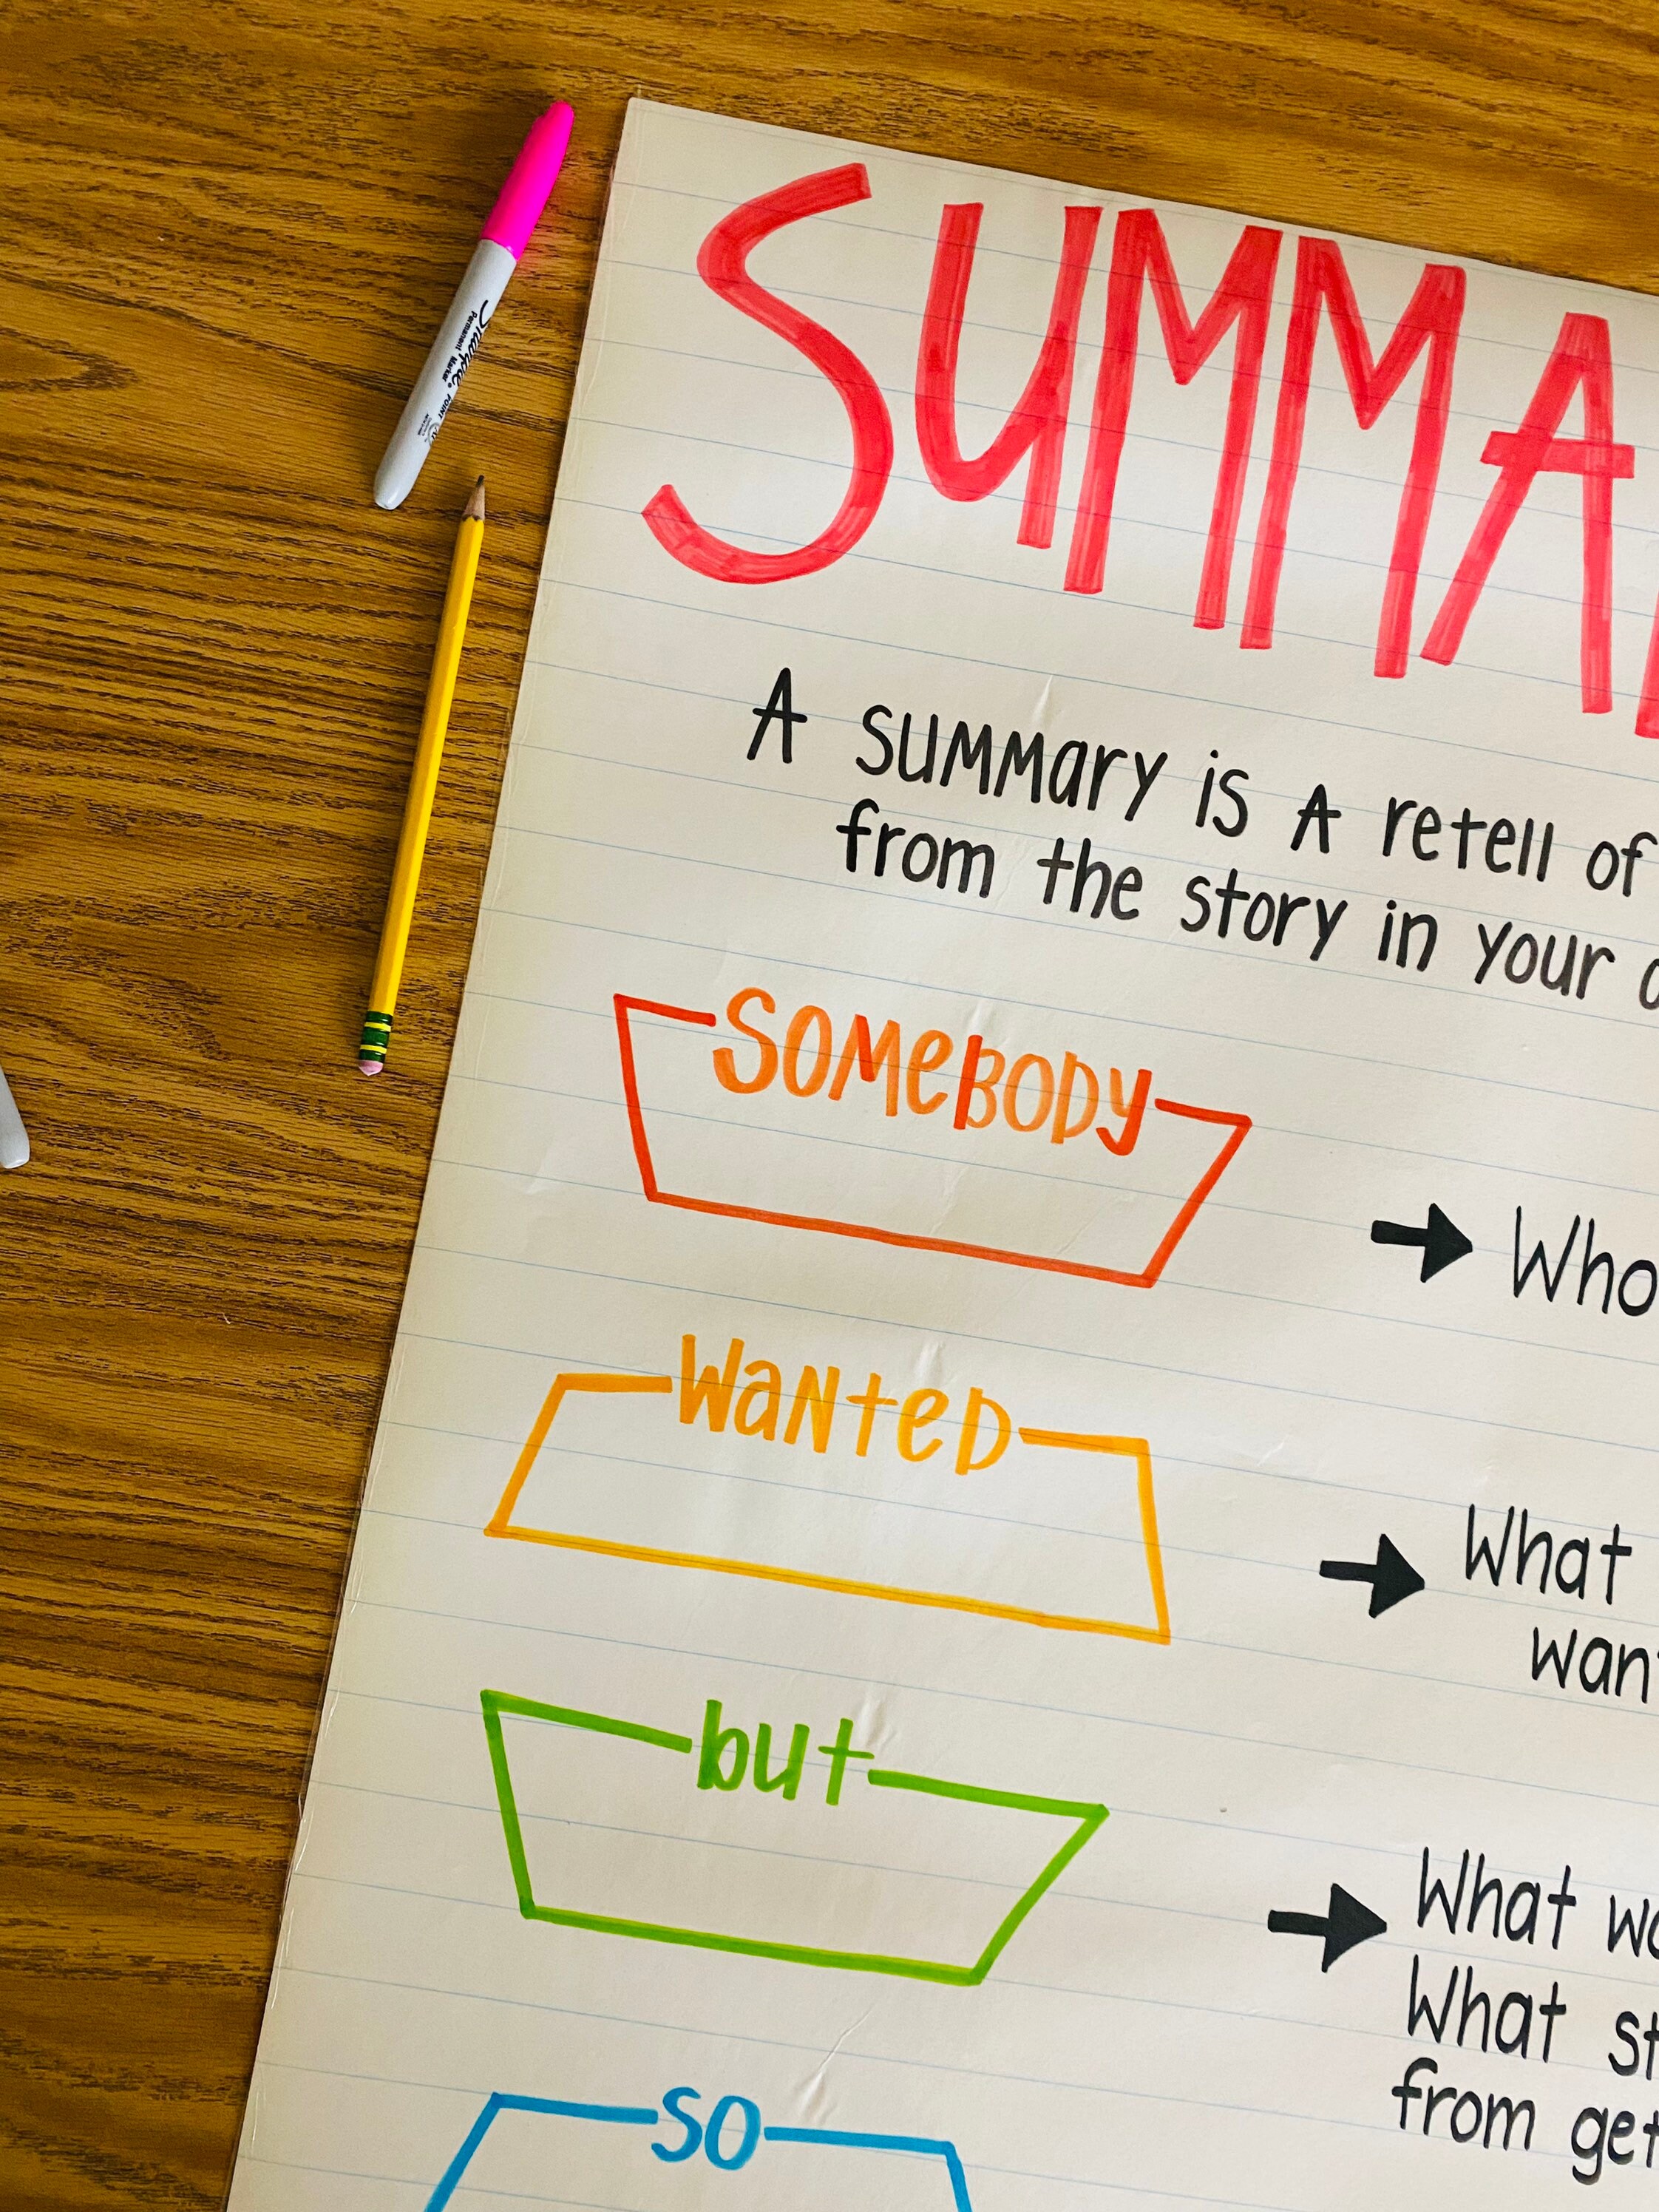 Sharpie
Permanent Marker
POINT
SUMMA
A summary is A retell of
from the story in your
SOMEBODY
Who
WANTED
What
wan
but
What
What st
from get
SO